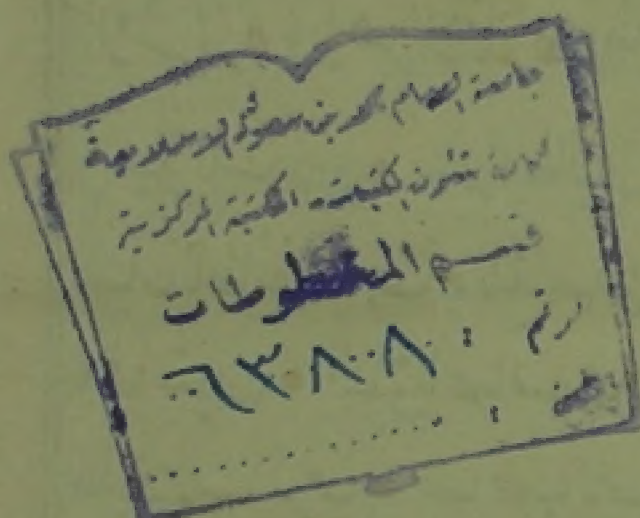 جامعة الإمام محمد بن سعود الإسلامية
عمادة شئون المكتبات المكتبة المركزية
قسم المخطوطات
رقم : ٦٣٨٠٨
: ..............